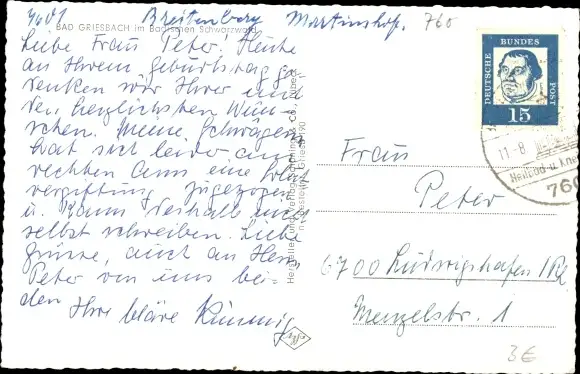 7601 Breitenberg Martinshof. 760
BAD GRIESBACH im Badischen Schwarzwald
Liebe Frau Peter! Heute
an Ihrem Geburtstag ge-
denken wir Ihrer mit
den herzlichsten Wün-
schen. Meine Schwägerin
hat sich leider am
rechten Arm eine Blut
vergiftung zugezogen
u. kann deshalb nicht
selbst schreiben. Liebe
Grüsse, auch an Herrn
Peter von uns bei-
den Ihre Kläre
DEUTSCHE BUNDESPOST
15
11-8
Heilbad u
760
Frau
Peter
6700 Ludwigshafen/Rh
Menzelstr. 1
3€